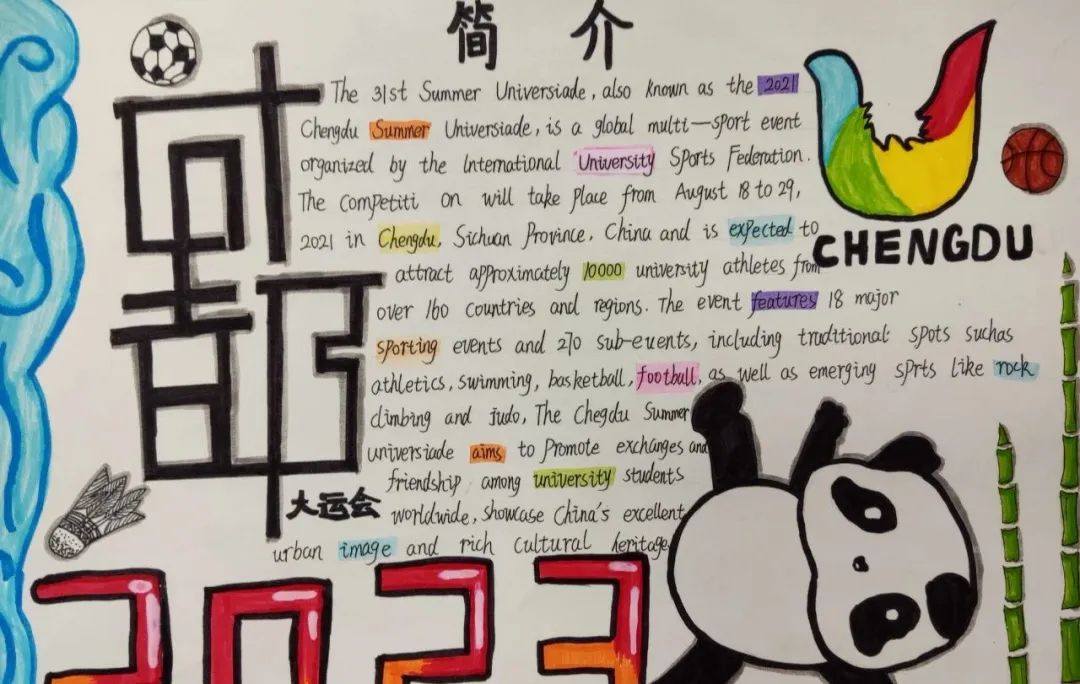 简介
The 31st Summer Universiade, also known as the 2021
Chengdu Summer Universiade, is a global multi-sport event
organized by the International University Sports Federation.
The Competiti on will take place from August 18 to 29,
2021 in Chengdu, Sichuan Province, China and is expected to
attract approximately 10000 university athletes from
over 160 countries and regions. The event features 18 major
sporting events and 270 sub-events, including traditional spots suchas
athletics, swimming, basketball, football, as well as emerging sprts like rock
climbing and judo, The Chegdu Summer
universiade aims to Promote exchanges and
friendship among university students
worldwide, showcase China's excellent
urban image and rich cultural heritage
CHENGDU
成都
大运会
2023